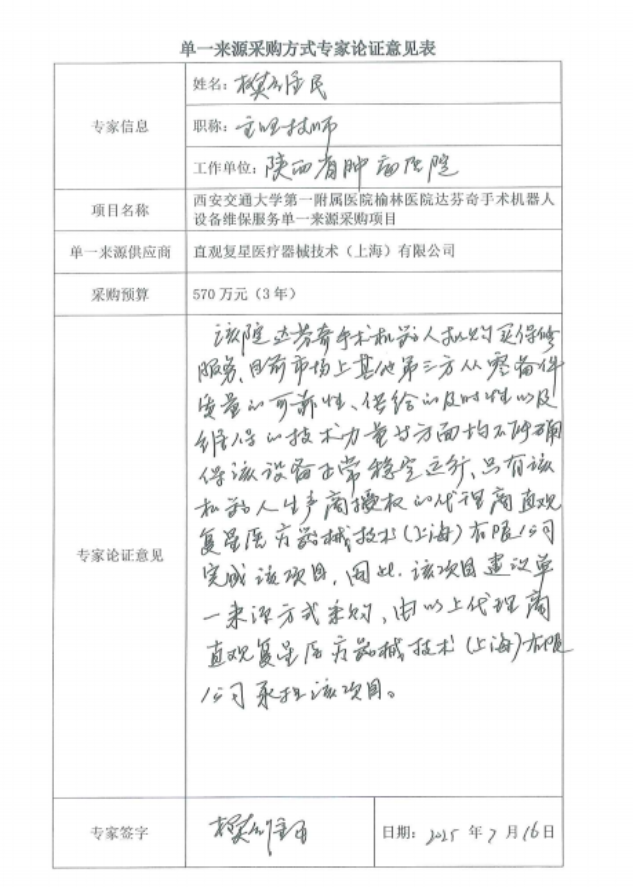 单一来源采购方式专家论证意见表
专家信息
姓名：樊
职称：主管技师
工作单位：陕西省肿瘤医院
项目名称
西安交通大学第一附属医院榆林医院达芬奇手术机器人
设备维保服务单一来源采购项目
单一来源供应商
直观复星医疗器械技术（上海）有限公司
采购预算
570 万元（3 年）
专家论证意见
该院达芬奇手术机器人拟购买保修
服务，目前市场上其他第三方从零备件
质量的可靠性、供给的及时性以及
维保的技术力量等方面均不能确
保该设备正常稳定运行，只有该
机器人生产商授权的代理商直观
复星医疗器械技术（上海）有限公司
完成该项目，因此，该项目建议单
一来源方式采购，由以上代理商
直观复星医疗器械技术（上海）有限
公司承担该项目。
专家签字
樊
日期：2025 年 7 月 16 日